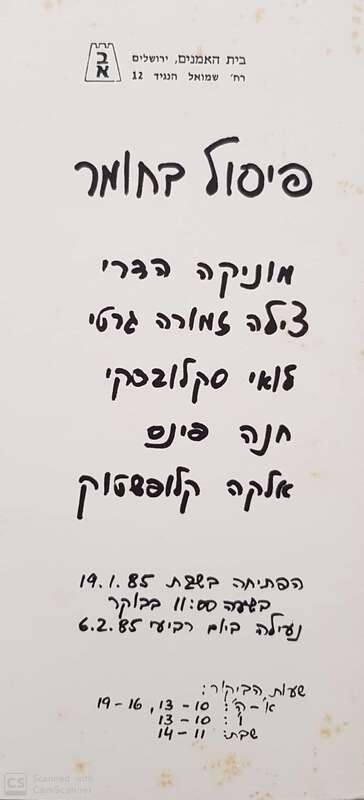 בא
בית האמנים, ירושלים
רח' שמואל הנגיד 12
פיסול בחומר
מוניקה הדרי
צילה זמורה גרטי
לואי סקלובסקי
חנה פינס
אלקה קלופשטוק
הפתיחה בשבת 19.1.85
בשעה 11:00 בבוקר
נעילה ביום רביעי 6.2.85
שעות הביקור:
א-ה': 10-13, 16-19
ו': 10-13
שבת: 11-14
CS Scanned with
CamScanner